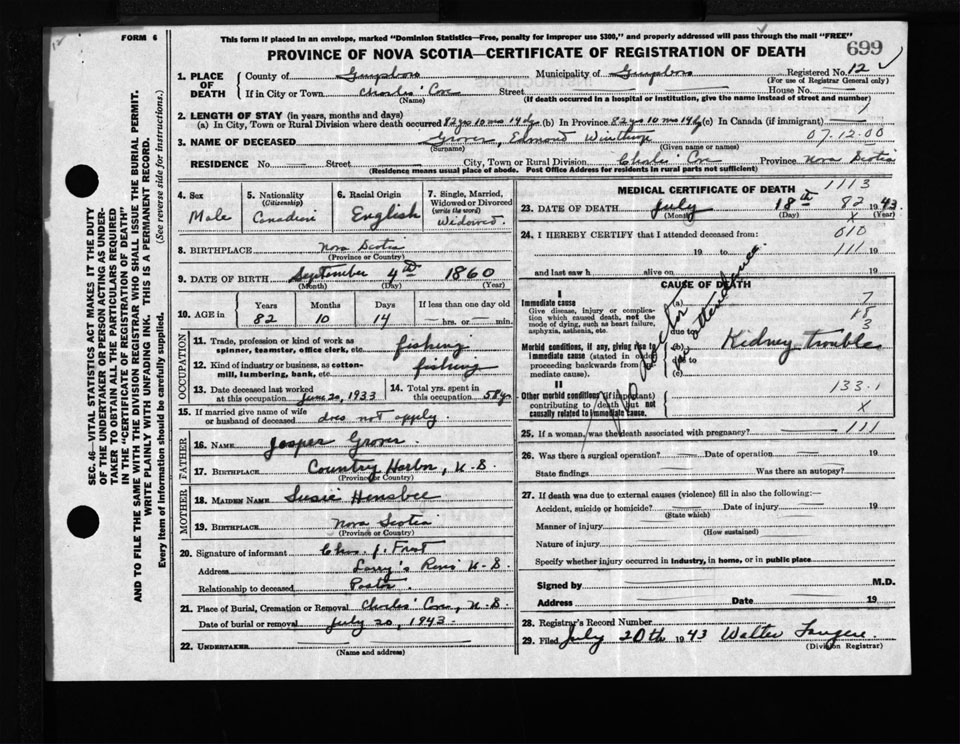 FORM 6
This form if placed in an envelope, marked "Dominion Statistics—Free, penalty for improper use $300," and properly addressed will pass through the mail "FREE"
PROVINCE OF NOVA SCOTIA—CERTIFICATE OF REGISTRATION OF DEATH
699
1. PLACE OF DEATH
County of Guysboro Municipality of Guysboro Registered No. 12
(For use of Registrar General only)
If in City or Town Charles' Cove Street House No.
(Name) (If death occurred in a hospital or institution, give the name instead of street and number)
2. LENGTH OF STAY (in years, months and days)
(a) In City, Town or Rural Division where death occurred 82 yrs 10 mos 14 dys (b) In Province 82 yrs 10 mos 14 dy (c) In Canada (if immigrant)
3. NAME OF DECEASED Grover, Edmond Winthrop 07.12.00
(Surname) (Given name or names)
RESIDENCE No. Street City, Town or Rural Division Charles' Cove Province Nova Scotia
(Residence means usual place of abode. Post Office Address for residents in rural parts not sufficient)
4. Sex
Male
5. Nationality (Citizenship)
Canadian
6. Racial Origin
English
7. Single, Married, Widowed or Divorced (write the word)
Widowed.
8. BIRTHPLACE Nova Scotia
(Province or Country)
9. DATE OF BIRTH September 4th 1860
(Month) (Day) (Year)
10. AGE in
Years Months Days If less than one day old
82 10 14 hrs. or min.
OCCUPATION
11. Trade, profession or kind of work as spinner, teamster, office clerk, etc. fishing
12. Kind of industry or business, as cotton-mill, lumbering, bank, etc. fishing
13. Date deceased last worked at this occupation June 20, 1933
14. Total yrs. spent in this occupation 58 yrs
15. If married give name of wife or husband of deceased does not apply.
FATHER
16. NAME Jasper Grover.
17. BIRTHPLACE Country Harbor, N.S.
(Province or Country)
MOTHER
18. MAIDEN NAME Susie Hensbee
19. BIRTHPLACE Nova Scotia
(Province or Country)
20. Signature of informant Chas. J. Frost
Address Larry's River N.S.
Relationship to deceased Pastor.
21. Place of Burial, Cremation or Removal Charles' Cove, N.S.
Date of burial or removal July 20, 1943.
22. UNDERTAKER
(Name and address)
MEDICAL CERTIFICATE OF DEATH
1113
23. DATE OF DEATH July 18th 82 1943
(Month) (Day) X (Year)
24. I HEREBY CERTIFY that I attended deceased from: 010
19 to 111 19
and last saw h alive on 19
CAUSE OF DEATH
I
Immediate cause (a) 7
Give disease, injury or complication which caused death, not the mode of dying, such as heart failure, asphyxia, asthenia, etc.
due to
+8
3
Morbid conditions, if any, giving rise to immediate cause (stated in order proceeding backwards from immediate cause).
(b)
due to
(c)
Kidney Trouble
II
Other morbid conditions (if important) contributing to death but not causally related to immediate cause.
133.1
X
25. If a woman, was the death associated with pregnancy? 111
26. Was there a surgical operation? Date of operation 19
State findings Was there an autopsy?
27. If death was due to external causes (violence) fill in also the following:—
Accident, suicide or homicide? Date of injury 19
(State which)
Manner of injury
(How sustained)
Nature of injury
Specify whether injury occurred in industry, in home, or in public place
Signed by M.D.
Address Date 19
28. Registrar's Record Number
29. Filed July 20th 1943 Walter
(Division Registrar)
SEC. 46—VITAL STATISTICS ACT MAKES IT THE DUTY
OF THE UNDERTAKER OR PERSON ACTING AS UNDER-
TAKER TO OBTAIN ALL THE PARTICULARS REQUIRED
IN THE "CERTIFICATE OF REGISTRATION OF DEATH"
AND TO FILE THE SAME WITH THE DIVISION REGISTRAR WHO SHALL ISSUE THE BURIAL PERMIT.
WRITE PLAINLY WITH UNFADING INK. THIS IS A PERMANENT RECORD.
Every item of information should be carefully supplied. (See reverse side for instructions.)